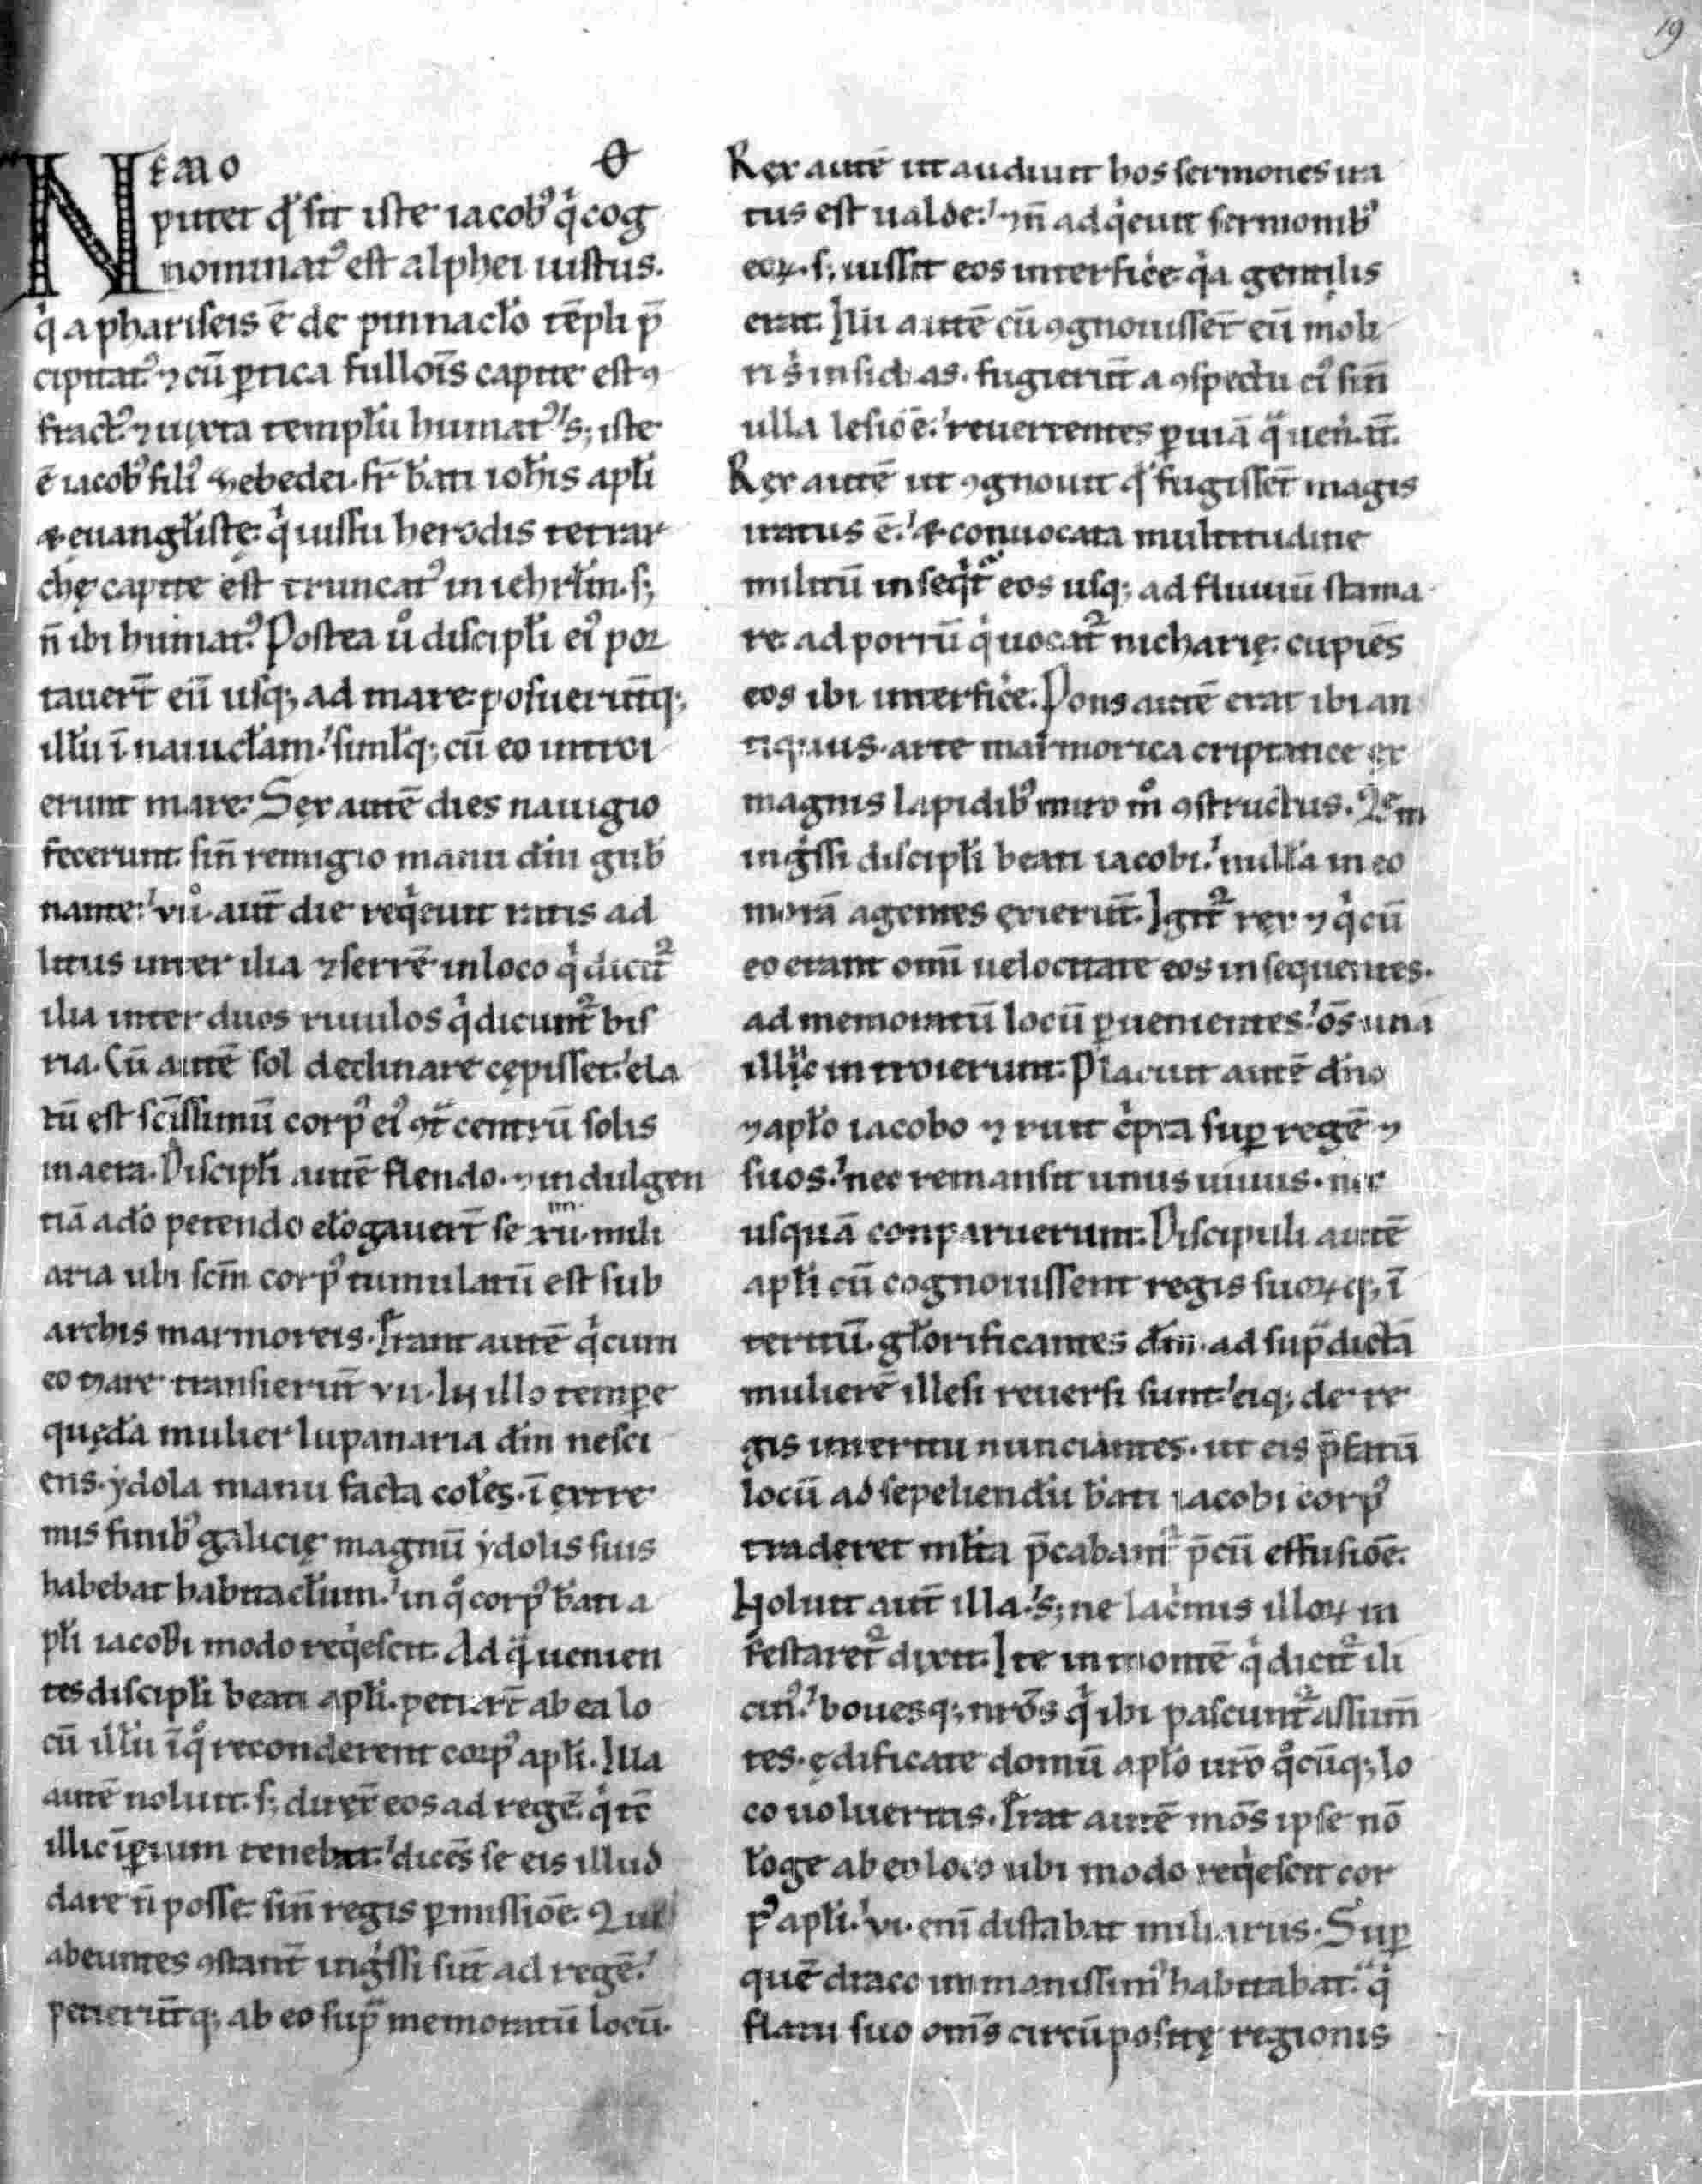 19
NEMO
putet qd sit iste iacobꝰ q cog
nominatꝰ est alphei iustus.
q a phariseis ē de pinnaclo tēpli p̄
cipitatꝰ ⁊ cū ꝑtica fullois capite est ꝯ
fractꝰ ⁊ iuxta templū humatꝰ; s; iste
ē iacobꝰ filiꝰ zebedei. fr̄ bati iohis apli
& euangliste. q iussu herodis tetrar
chę capite est truncatꝰ in iehrlm. s;
n̄ ibi humatꝰ. Postea ů discipli eiꝰ por
tauert̄ eū usq; ad mare. posuerūtq;
illū ī nauiclam. simlq; cū eo introi
erunt mare. Sex autē dies nauigio
fecerunt. sin̄ remigio manu dni gub
nante. vii. aut̄ die reqeuit ratis ad
litus inter ilia ⁊ serrē in loco q dicit̄
ilia inter duos riuulos q dicunt̄ bis
ria. Cū autē sol declinare cępisset. ela
tū est scissimū corpꝰ eiꝰ ꝯt̄ centrū solis
in aera. Discipli autē flendo. ⁊ indulgen
tiā a do petendo elogauert̄ se xii. mili
aria ubi scm̄ corpꝰ tumulatū est sub
archis marmoreis. Erant autē q cum
eo mare transierūt vii. In illo tempe
quędā mulier lupanaria dm̄ nesci
ens. ydola manu facta coles. ī extre
mis finibꝰ galicię magnū ydolis suis
habebat habitaclum. in qo corpꝰ bati a
pli iacobi modo reqescit. Ad q̄ uenien
tes discipli beati apli. petiert̄ ab ea lo
cū illū ī qo reconderent corpꝰ apli. Illa
autē noluit. s; direx̄ eos ad regē. q tc̄
illic īꝑium tenebat. dicēs se eis illud
dare n̄ posse. sin̄ regis ꝑmissiōe. Qui
abeuntes ꝯstant̄ ingssi sūt ad regē.
petierūtq; ab eo sup memoratū locū.
Rex autē ut audiuit hos sermones ira
tus est ualde. ⁊ n̄ adqeuit sermonibꝰ
eoꝝ. s; iussit eos interficē. qa gentilis
erat. Illi autē cū ꝯgnouissēt eū moli
ri s insidias. fugierūt a ꝯspectu eiꝰ sin̄
ulla lesiōe. reuertentes ꝑ uiā q uener̄t.
Rex autē ut ꝯgnouit qd fugissēt magis
iratus ē. & conuocata multitudine
militū inseqt̄ eos usq; ad fluuiū stama
re. ad portū q uocat̄ nicharię. cupiēs
eos ibi interficē. Pons autē erat ibi an
tiquus. arte marmorica criptatice ex
magnis lapidibꝰ miro mo ꝯstructus. Quē
ingssi discipli beati iacobi. nullā in eo
morā agentes exierūt. Igit̄ rex ⁊ q cū
eo erant omī uelocitate eos insequentes.
ad memoratū locū ꝑuenientes. os una
illuc introierunt. Placuit autē dno
⁊ aplo iacobo ⁊ ruit cpta suꝑ regē ⁊
suos. nec remansit unus uiuus. nec
usquā conparuerunt. Discipuli autē
apli cū cognouissent regis suoꝝq; ī
teritū. glorificantes dm̄. ad supdictā
mulierē illesi reuersi sunt. eiq; de re
gis interitu nunciantes. ut eis p̄fatū
locū ad sepeliendū bati iacobi corpꝰ
traderet mlta p̄cabant̄ p̄cū effusiōe.
Noluit aut̄ illa. s; ne lacmis illoꝝ in
festaret̄ dixit. Ite in montē q dicit̄ ili
cinꝰ. bouesq; nr̄os q ibi pascunt̄ assum̄
tes. ędificate domū aplo uro qocūq; lo
co uolueritis. Erat autē mōs ipse nō
loge ab eo loco ubi modo reqescit cor
pꝰ apli. vi. eni distabat miliarus. Suꝑ
quē draco immanissimꝰ habitabat. q
flatu suo oms circūpositę regionis